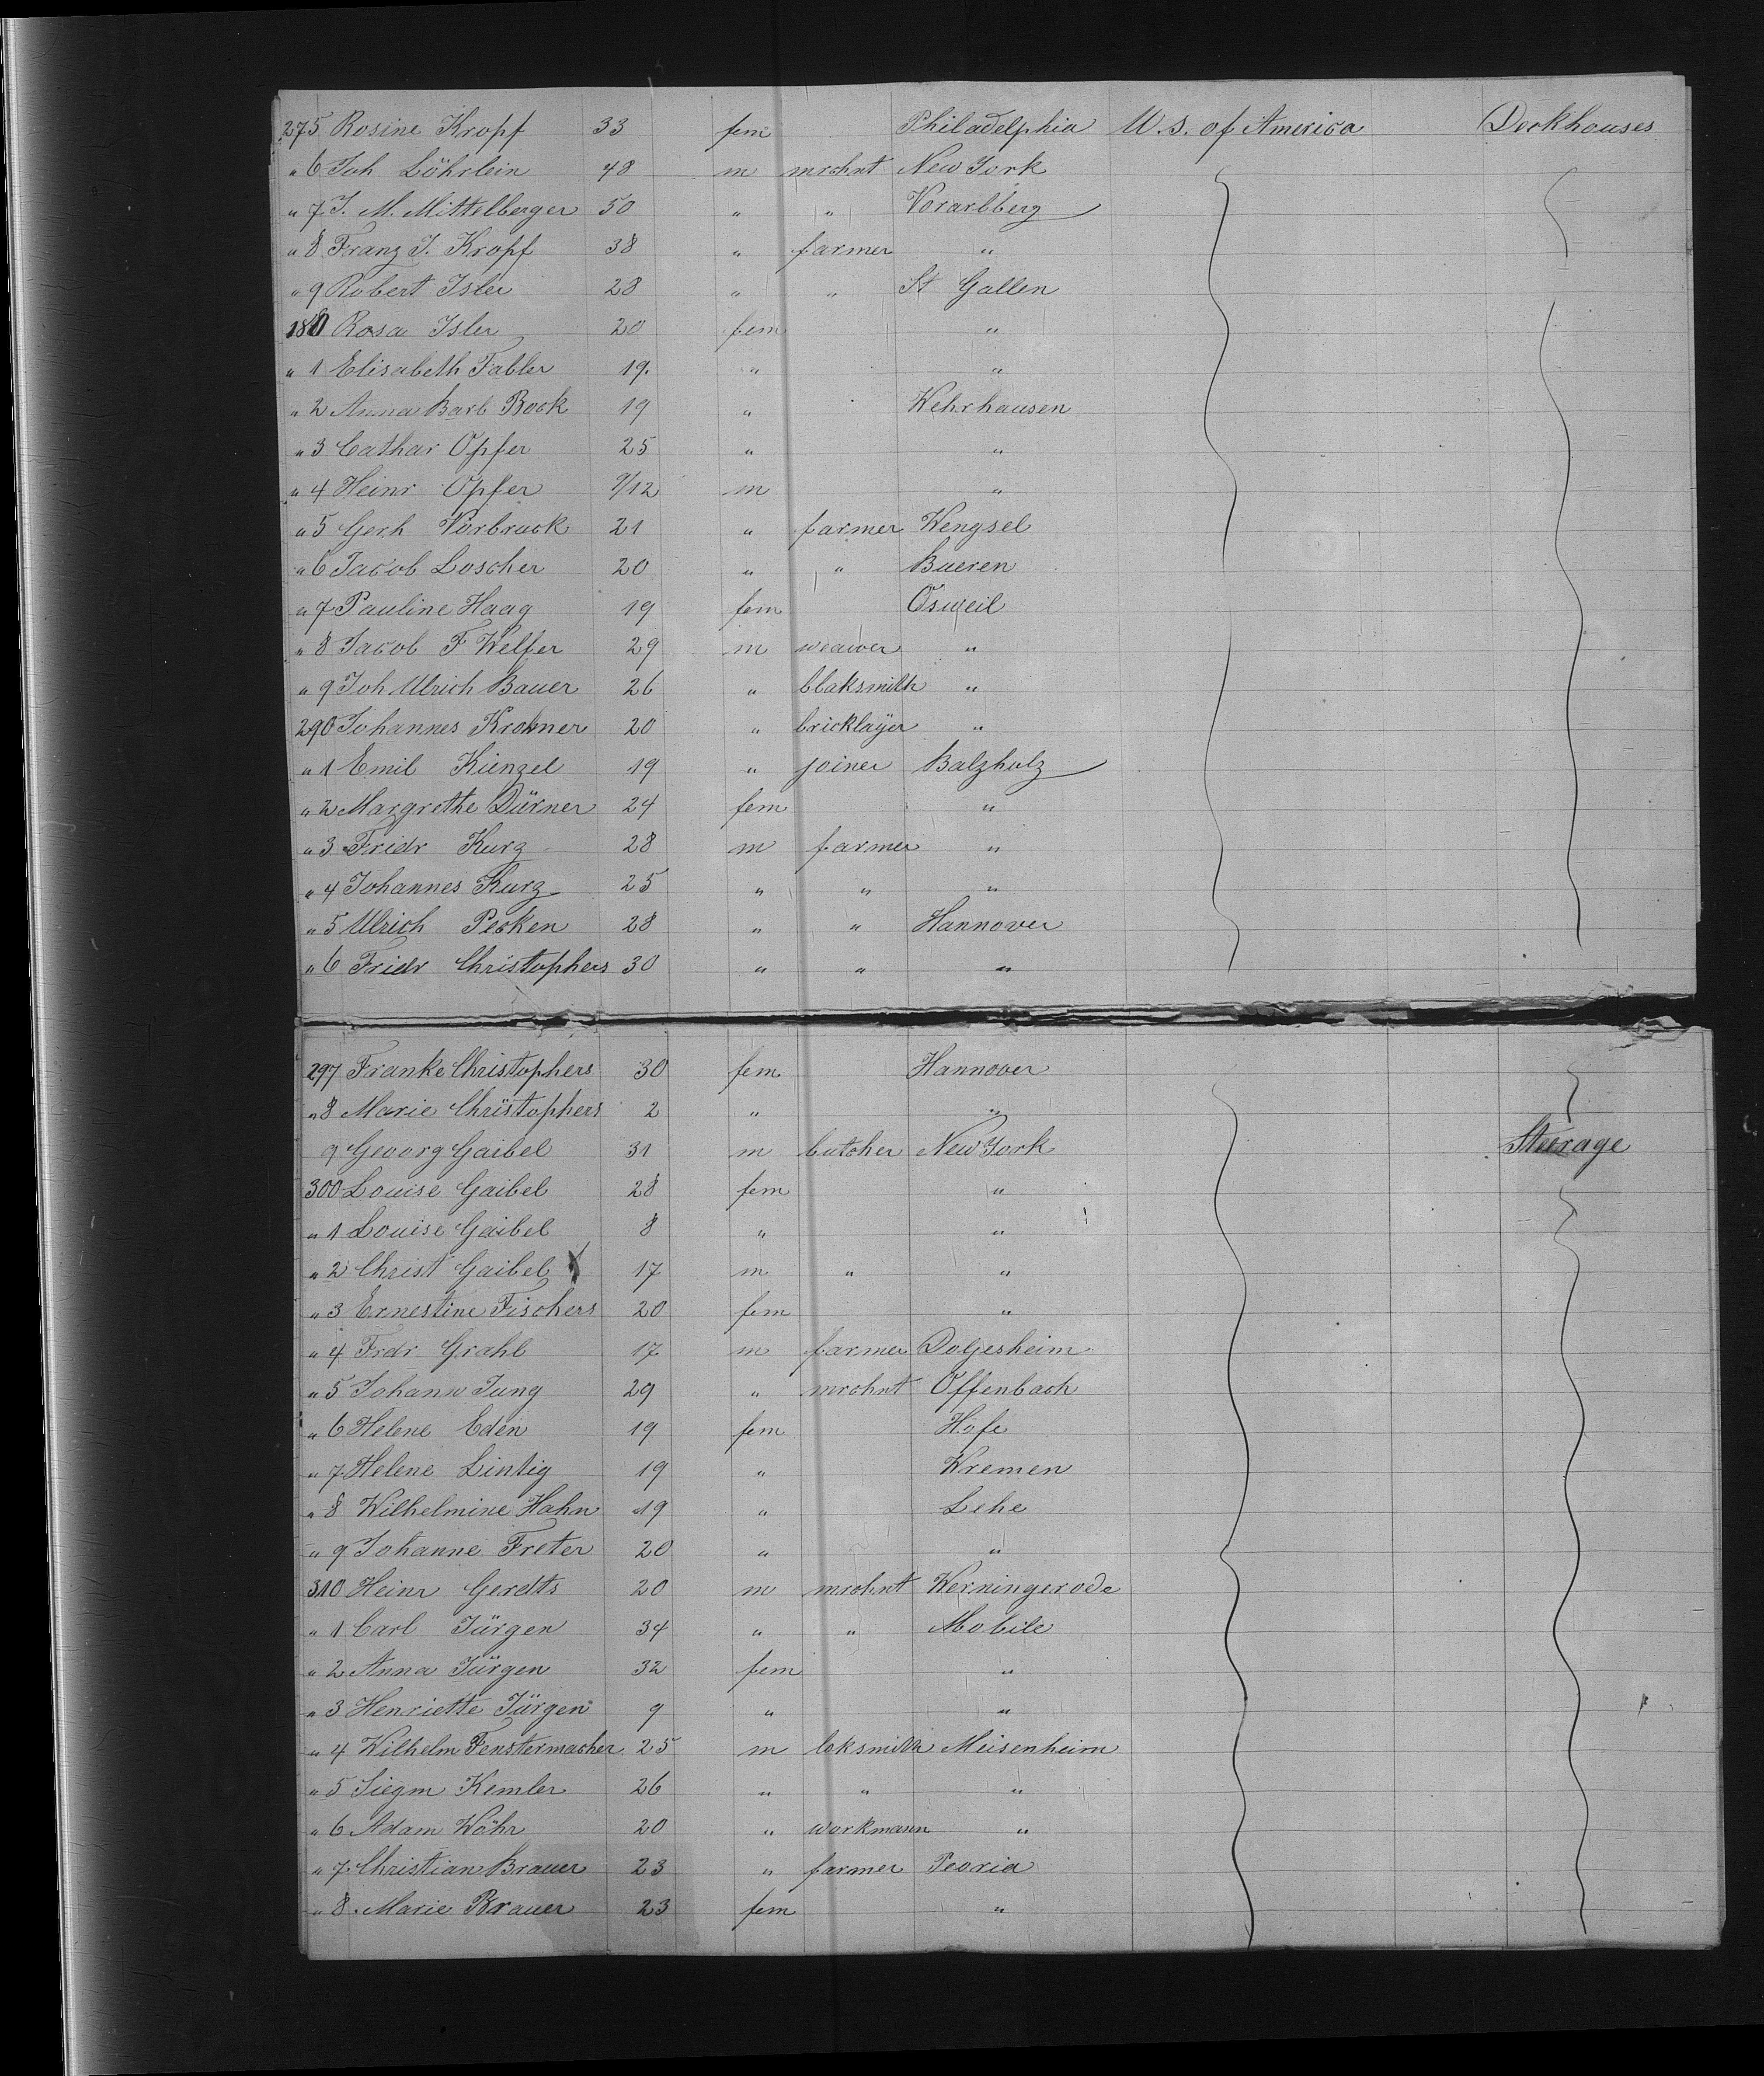 275 Rosine Kropf 33 fem Philadelphia U. S. of America Deckhouses
" 6 Joh Löhrlein 48 m mrchnt New York
" 7 J. M. Mittelberger 50 " " Vorarlberg
" 8 Franz J. Kropf 38 " farmer "
" 9 Robert Isler 28 " " St Gallen
180 Rosa Isler 20 fem "
" 1 Elisabeth Tabler 19. " "
" 2 Anna Barb Bock 19 " Wehrhausen
" 3 Cathar Opfer 25 " "
" 4 Heinr Opfer 9/12 m "
" 5 Gerh Vorbrack 21 " farmer Wengsel
" 6 Jacob Loscher 20 " " Bueren
" 7 Pauline Haag 19 fem Osweil
" 8 Jacob F Welfer 29 m weawer "
" 9 Joh Ulrich Bauer 26 " blaksmith "
290 Johannes Krohner 20 " bricklayer "
" 1 Emil Künzel 19 " joiner Balzholz
" 2 Margrethe Dürner 24 fem "
" 3 Fridr Kurz 28 m farmer "
" 4 Johannes Kurz 25 " " "
" 5 Ulrich Pecken 28 " " Hannover
" 6 Fridr Christophers 30 " " "
297 Franke Christophers 30 fem Hannover
" 8 Marie Christophers 2 " "
9 Georg Gaibel 31 m butcher New York Steerage
300 Louise Gaibel 28 fem "
" 1 Louise Gaibel 8 " "
" 2 Christ Gaibel 17 m " "
" 3 Ernestine Fischers 20 fem "
" 4 Frdr Grahl 17 m farmer Dolgesheim
" 5 Johann Jung 29 " mrchnt Offenbach
" 6 Helene Eden 19 fem Hofe
" 7 Helene Lintig 19 " Wremen
" 8 Wilhelmine Hahn 19 " Lehe
" 9 Johanne Freter 20 " "
310 Heinr Gerdts 20 m mrchnt Werningerode
" 1 Carl Jürgen 34 " " Mobile
" 2 Anna Jürgen 32 fem "
" 3 Henriette Jürgen 9 " "
" 4 Wilhelm Fenstermacher 25 m loksmith Meisenheim
" 5 Siegm Kemler 26 " " "
" 6 Adam Wöhr 20 " workmann "
" 7 Christian Brauer 23 " farmer Peoria
" 8 Marie Brauer 23 fem "